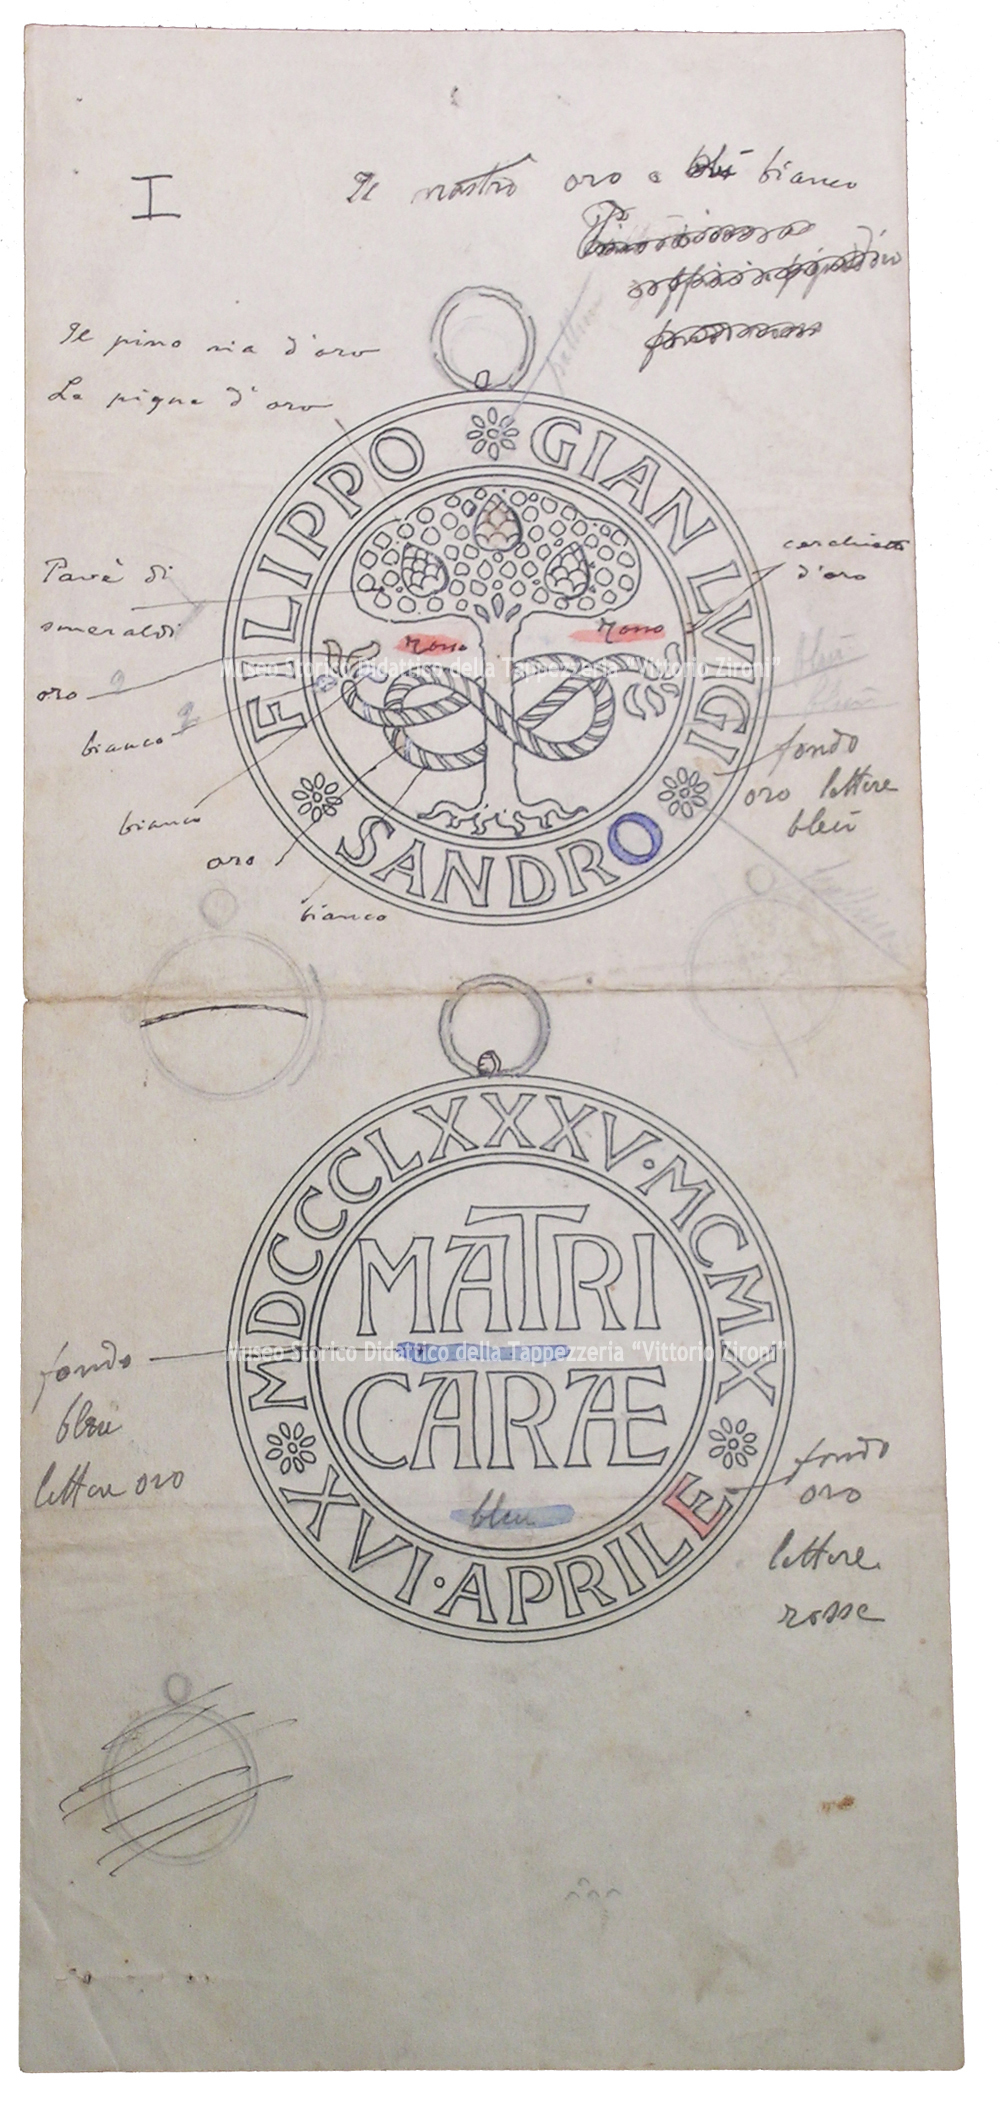 I
Il nastro oro e blù bianco
Il pino sia d'oro
La pigna d'oro
FILIPPO
GIAN LVGI
SANDRO
cerchietti
d'oro
Pavè di
smeraldi
rosso
rosso
Museo Storico Didattico della Tappezzeria “Vittorio Zironi”
bleu
bleu
oro
bianco
fondo
oro lettere
bleù
bianco
oro
bianco
MDCCCLXXXV·MCMIX
MATRI
CARÆ
Museo Storico Didattico della Tappezzeria “Vittorio Zironi”
fondo
bleu
lettere oro
bleu
XVI·APRILE
fondo
oro
lettere
rosse